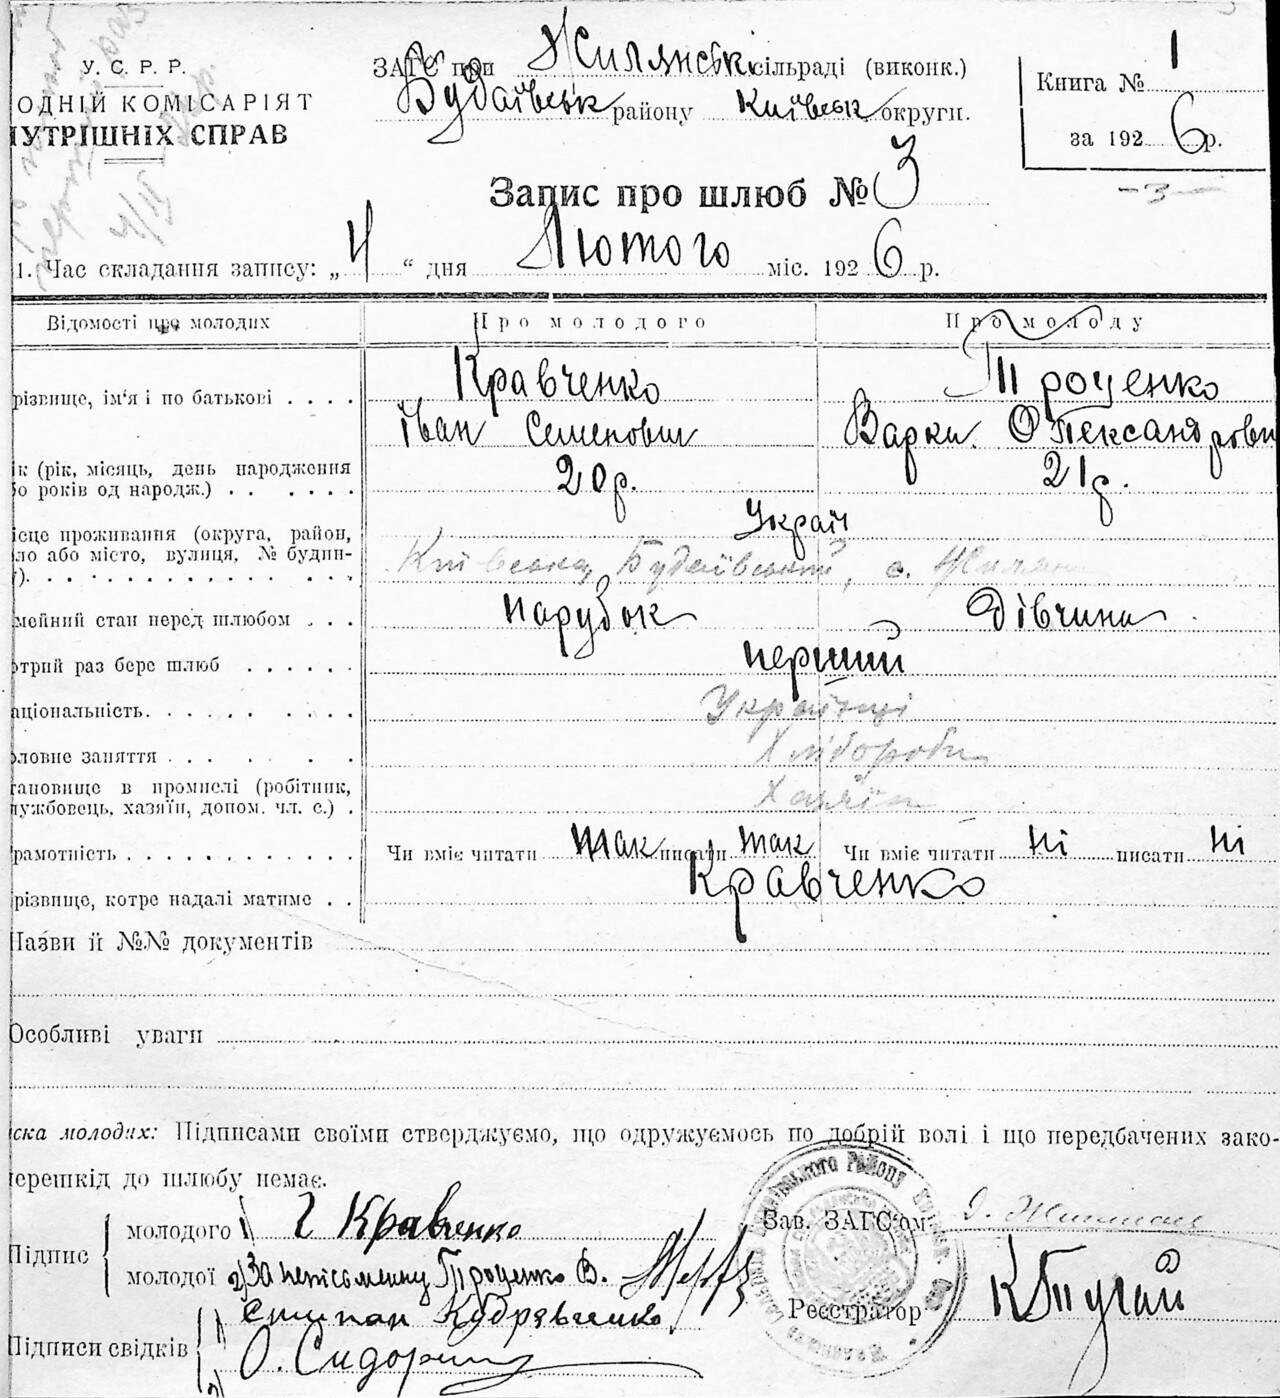 У. С. Р. Р.
ОДНІЙ КОМІСАРІЯТ
НУТРІШНІХ СПРАВ
ЗАГС при Жилянські сільраді (виконк.)
Будаївськ району Київськ округи.
Книга № 1
за 1926 р.
Запис про шлюб № 3
-3-
1. Час складання запису: „4“ дня Лютого міс. 1926 р.
Відомості про молодих Про молодого Про молоду
різвище, ім'я і по батькові . . . . Кравченко Троценко
Іван Семенович Варка Олександровн
ік (рік, місяць, день народження
бо років од народж.) . . . . . . 20 р. 21 р.
ісце проживання (округа, район, Украй
ло або місто, вулиця, № будин-
у). Київська, Будаївський, с. Жиляни
мейний стан перед шлюбом . . . парубок дівчина
отрий раз бере шлюб . . . . . . перший
аціональність. . . . . . . . . Українці
оловне заняття . . . . . . Хлібороби
тановище в промислі (робітник,
лужбовець, хазяїн, допом. чл. с.) . Хазяїн
рамотність . . . . . . . . . . . . Чи вміє читати так писати так Чи вміє читати ні писати ні
різвище, котре надалі матиме . . Кравченко
Назви й №№ документів
Особливі уваги
іска молодих: Підписами своїми стверджуємо, що одружуємось по добрій волі і що передбачених зако-
ерешкід до шлюбу немає.
Підпис { молодого 1) І Кравченко
молодої 2) За неписьменну Троценко В.
Зав. ЗАГС'ом
Реєстратор К Пугай
Підписи свідків { 1) Степан Кудрявченко
2) О. Сидор